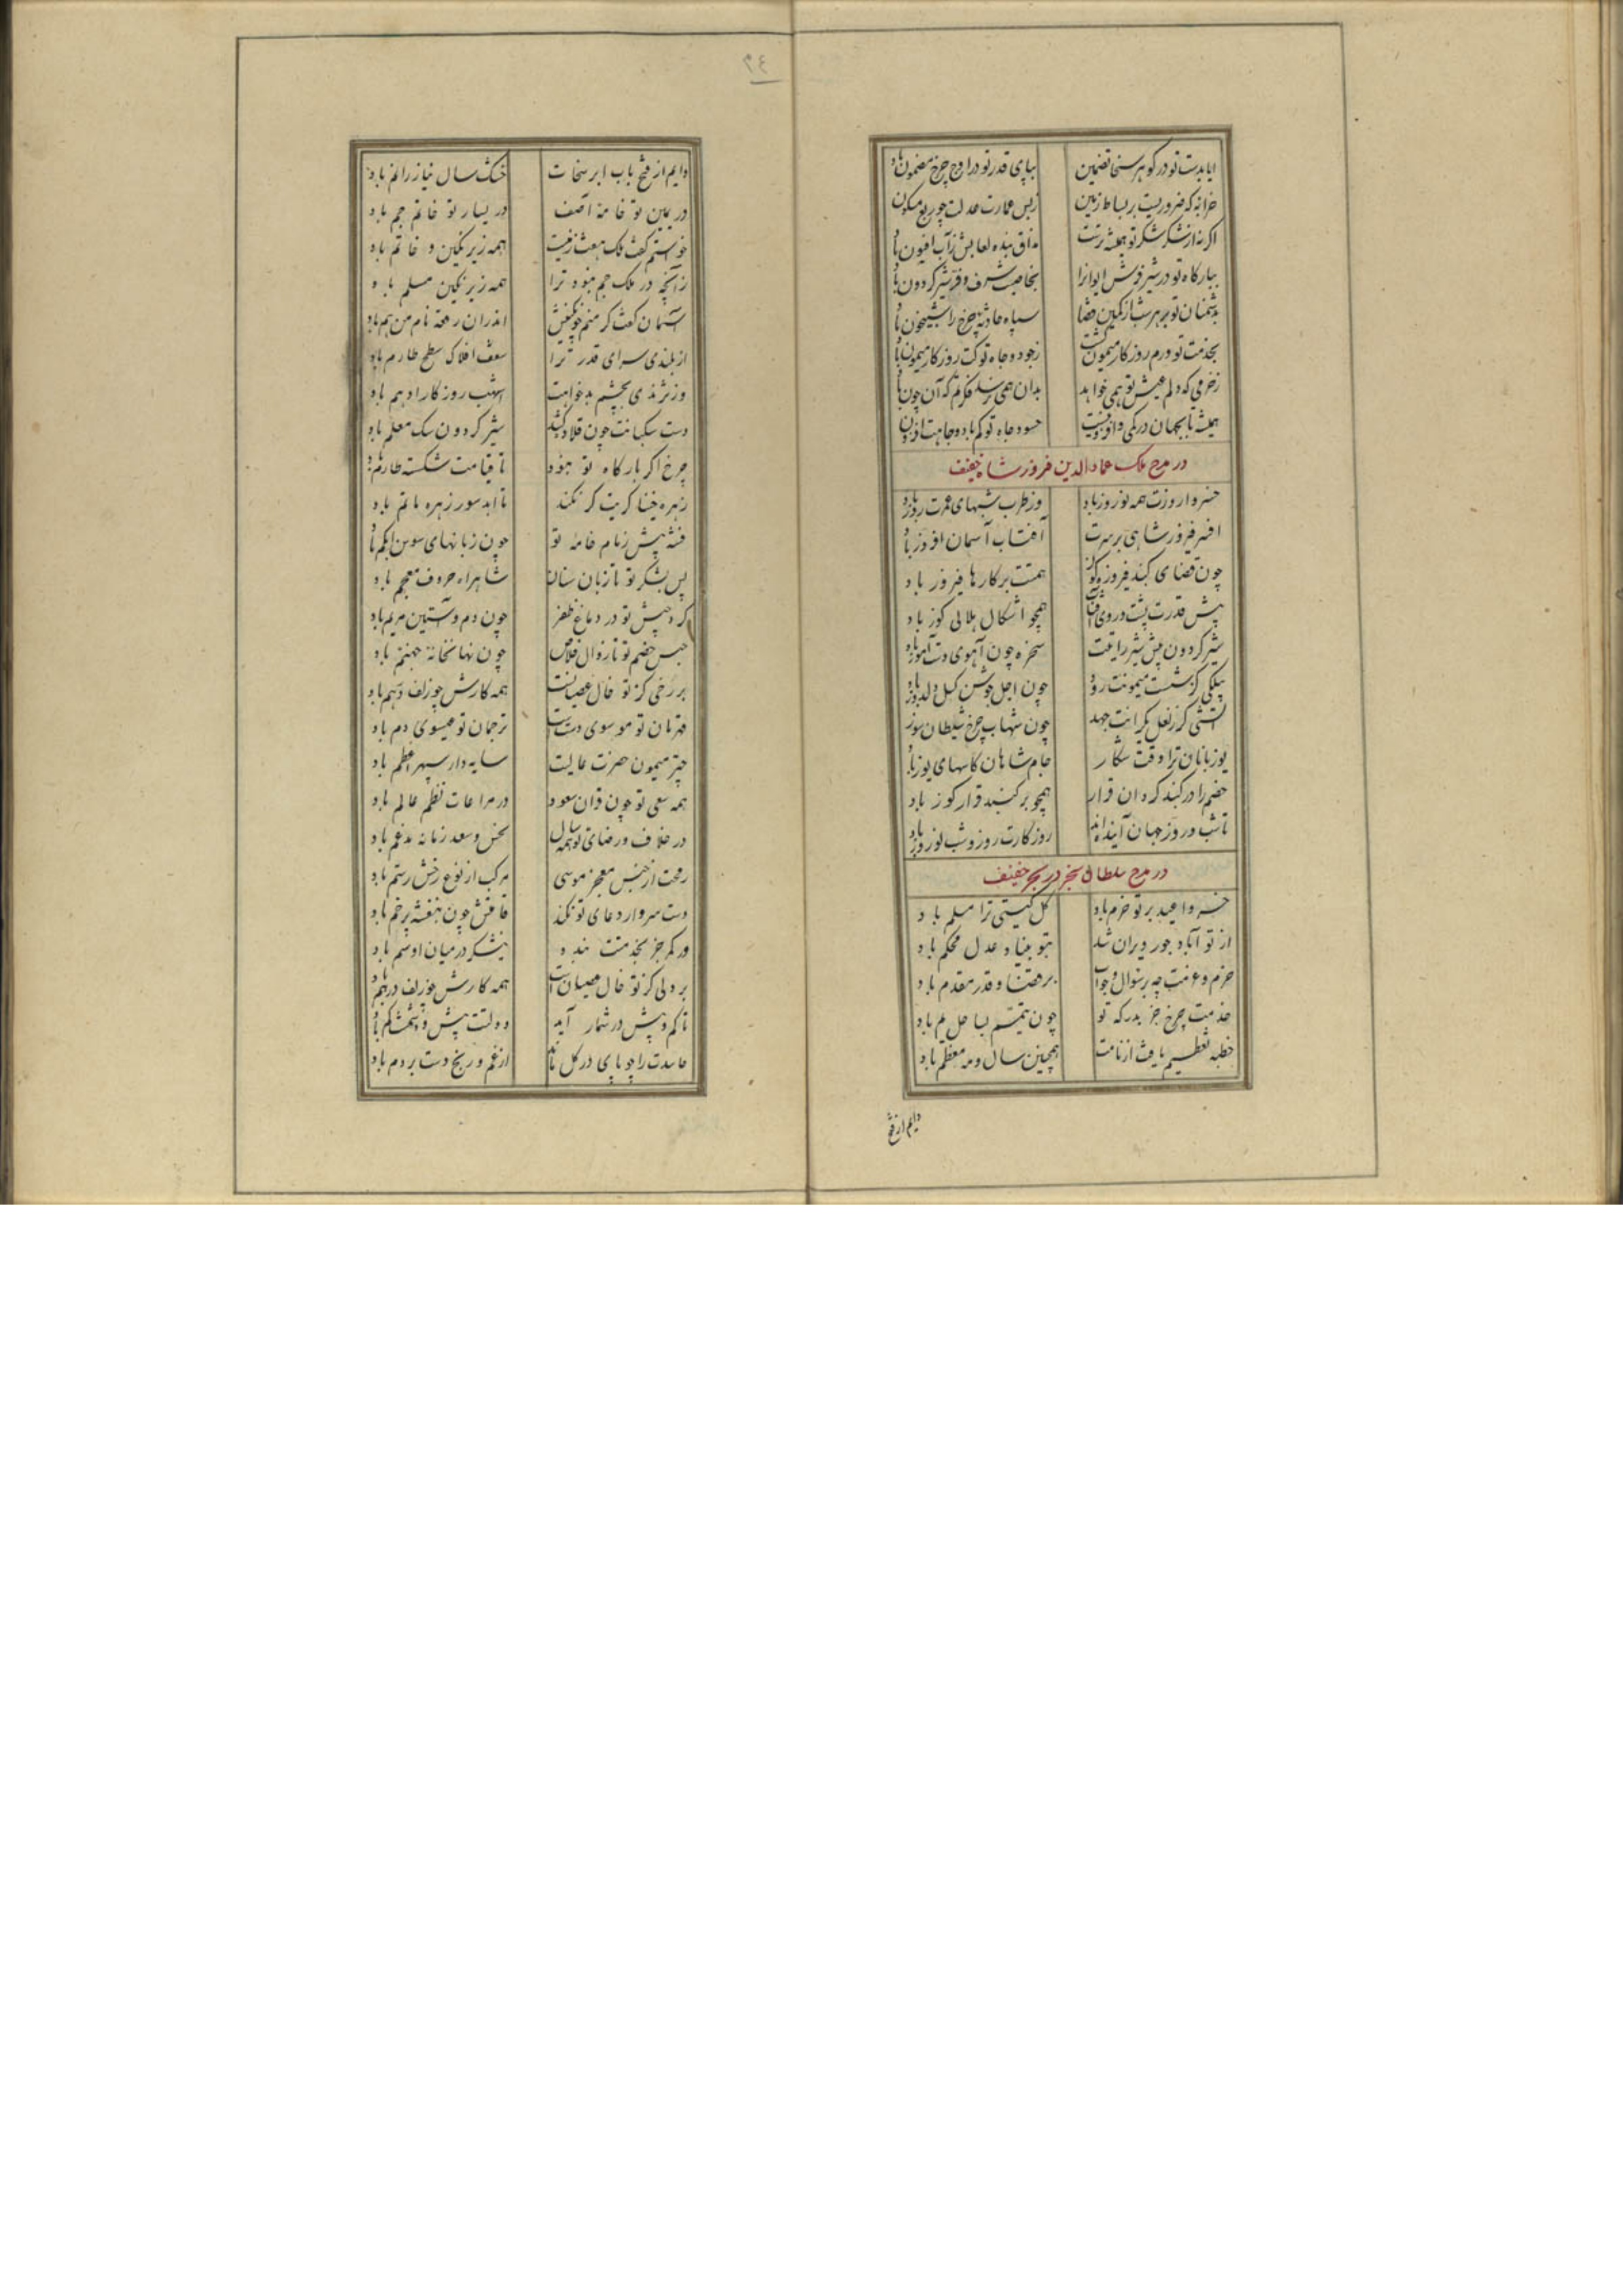 ایا بدست تو در کوهر سخا تضمین بپای قدر تو در اوج چرخ مضمون باد
خرابه که ضروریست بر بساط زمین ز بس عمارت عدلت چو ربع مسکون
اکر نه از شکر شکر تو همیشه ترست مذاق بنده لعابش ز آب افیون باد
ببارکاه تو در شیر فرش ایوانرا بخاصیت شرف و فر شیر کردون باد
بدشمنان تو بر هر شب از کمین قضا سپاه حادثه چرخ را شبیخون باد
بخدمت تو درم روزکار میمون کشت ز جود و جاه تو کت روزکار میمون باد
ز خرمی که دلم عیش تو همی خواهد بدان همی نرسد فکرتم که آن چون باد
همیشه تا بجهان در کمی و افزونیست حسود جاه تو کم باد و جاهت افزون
در مدح ملک عماد الدین فیروز شاه خفیف
خسروا روزت همه نوروز باد وز طرب شبهای عمرت روز باد
افسر فیروز شاهی بر سرت آفتاب آسمان افروز باد
چون قضای کنبد فیروزه کون همتت بر کارها فیروز باد
پیش قدرت پشت و روی آفتاب همچو اشکال هلالی کوز باد
شیر کردون پیش شیر رایتت سخره چون آهوی دست آموز باد
پیلکی کز شست میمونت رود چون اجل جوشن کسل و دلدوز باد
آتشی کز نعل یکرانت جهد چون شهاب چرخ شیطان سوز
یوزبانان ترا وقت شکار جام شاهان کاسهای یوز باد
خصم را در کنبد کردان قرار همچو بر کنبد قرار کوز باد
تا شب و روز جهان آینده‌اند روزکارت روز و شب نوروز باد
در مدح سلطان سنجر در بحر خفیف
خسروا عید بر تو خرم باد کل کیتی ترا مسلم باد
از تو آباد جور ویران شد بتو بنیاد عدل محکم باد
حزم و عزمت چه بر سئوال و جواب بر قضا و قدر مقدم باد
خدمت چرخ جز بدرکه تو چون تیمم بساحل یم باد
خطبه تعظیم یافت از نامت همچنین سال و مه معظم باد
دایم از فتح
۲۴
دایم از فتح باب ابر سخات خشک سال نیاز را نم باد
در یمین تو خامهٔ آصف در یسار تو خاتم جم باد
خواستم کفت ملک هفت زمیت همه زیر نکین و خاتم باد
ز آنچه در ملک جم نبود ترا همه زیر نکین مسلم باد
آسمان کفت کر منم خو نکینش اندران رقعه نام من هم باد
از بلندی سرای قدر ترا سقف افلاک سطح طارم باد
وز نژندی بچشم بدخواهت اشهب روزکار ادهم باد
دست سکبانت چون قلاده کشد شیر کردون سک معلم باد
چرخ اکر بارکاه تو نبود تا قیامت شکسته طارم باد
زهره خنیاکریت کر نکند تا ابد سور زهره ماتم باد
فتنه پیش زمام خامهٔ تو چون زبانهای سوسن ابکم باد
پس لشکر تو تا زبان سنان شاهراه حروف معجم باد
کرد جیش تو در دماغ ظفر چون دم و آستین مریم باد
حبس خصم تو تا زوال خلاص چون نهانخانهٔ جهنم باد
بر رخی کز تو خال عصیانست همه کارش چو زلف درهم باد
قهرمان تو موسوی دست است ترجمان تو عیسوی دم باد
چتر میمون حضرت عالیت سایه دار سپهر اعظم باد
همه سعی تو چون قران سعود در مراعات نظم عالم باد
در خلاف و رضای تو همه سال نحس و سعد زمانه مدغم باد
رمحت از جنس معجز موسی مرکب از نوع رخش رستم باد
دست سرو ار دعای تو نکند قامتش چون بنفشه پر خم باد
ور کمر جز بخدمتت بندد نیشکر در میان او سم باد
بر دلی کز تو خال عصیان است همه کارش چو زلف درهم باد
تا کم و بیش در شمار آید دولتت بیش و دشمنت کم باد
حاسدت را چو پای در کل ماند از غم و رنج دست بر دم باد